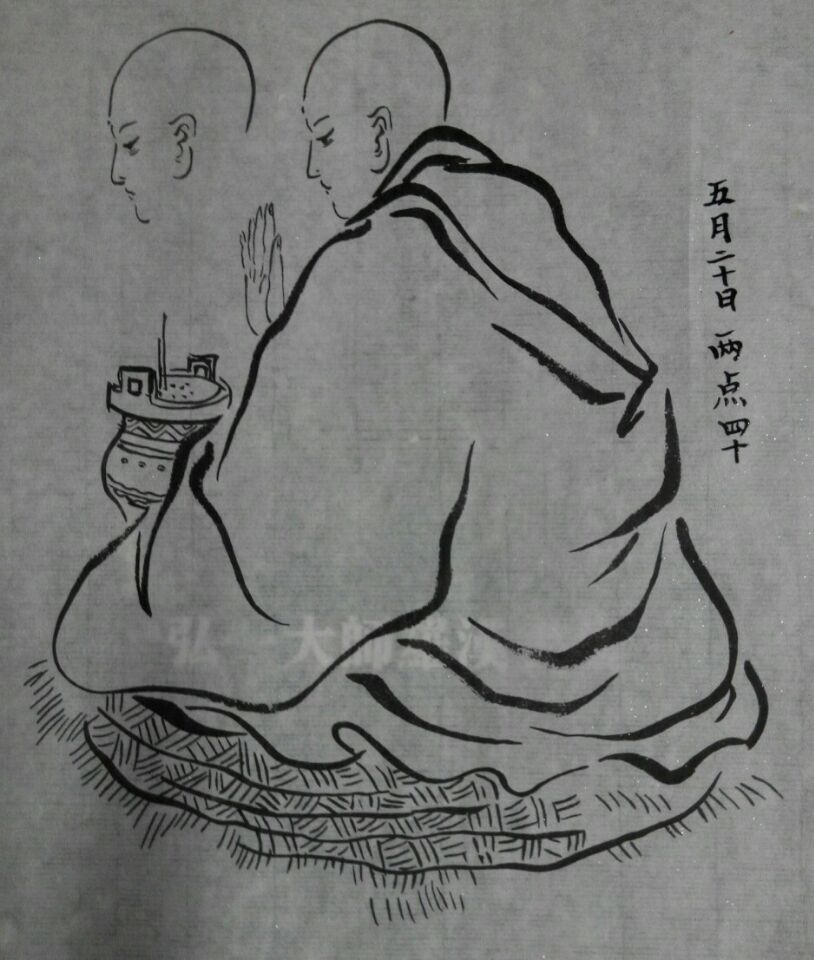 五月二十日 两点四十
弘 大師